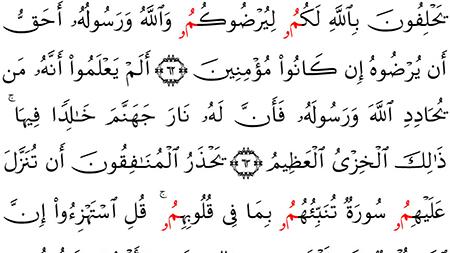 يَحْلِفُونَ بِاللَّهِ لَكُمُۥ لِيُرْضُوكُمُۥ وَاللَّهُ وَرَسُولُهُۥ أَحَقُّ
أَن يُرْضُوهُ إِن كَانُوا۟ مُؤْمِنِينَ ۝٦٢ أَلَمْ يَعْلَمُوٓا۟ أَنَّهُۥ مَن
يُحَادِدِ ٱللَّهَ وَرَسُولَهُۥ فَأَنَّ لَهُۥ نَارَ جَهَنَّمَ خَٰلِدًا فِيهَا ۚ
ذَٰلِكَ ٱلْخِزْىُ ٱلْعَظِيمُ ۝٦٣ يَحْذَرُ ٱلْمُنَٰفِقُونَ أَن تُنَزَّلَ
عَلَيْهِمُۥ سُورَةٌ تُنَبِّئُهُمُۥ بِمَا فِى قُلُوبِهِمُۥ ۚ قُلِ ٱسْتَهْزِءُوٓا۟ إِنَّ